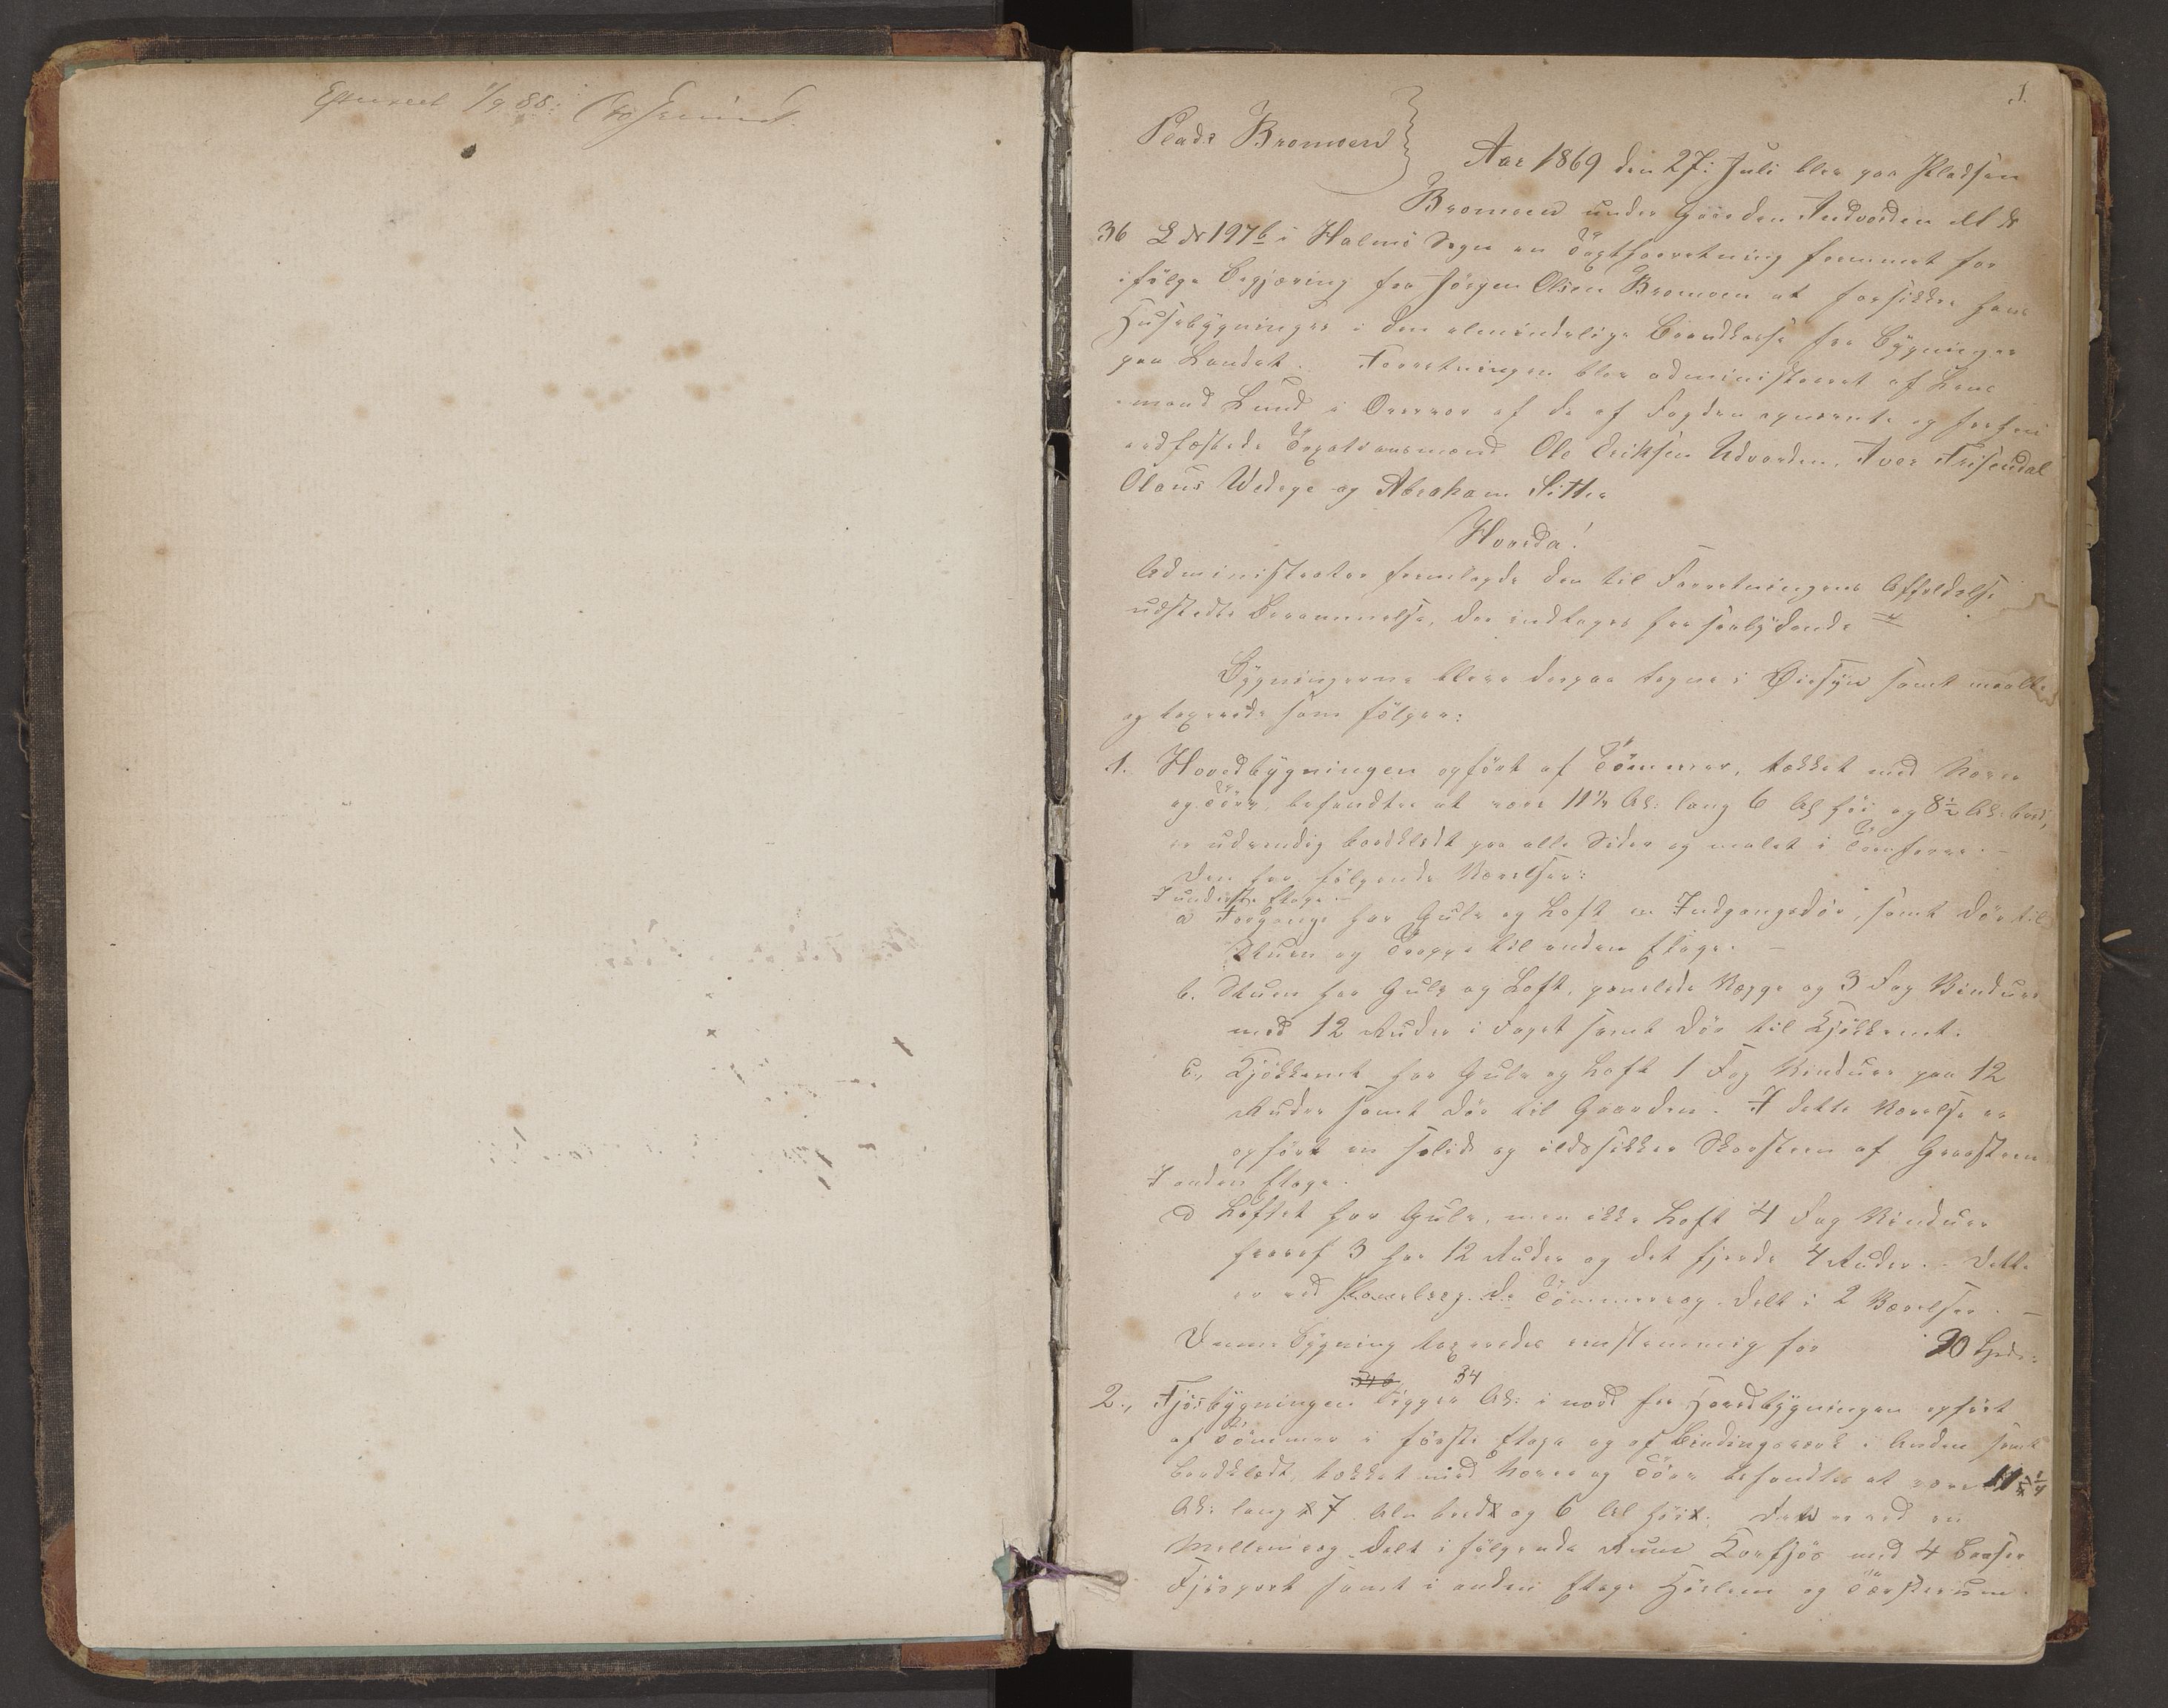 Efterseet 1/9 88.
1.
Plads Bromoen
Aar 1869 den 27: Juli blev paa Pladsen
Bromoen under Gaarden Indvorden M №
36 L № 197b i Holmi Sogn en Taxtforretning fremmet for
ifölge Begjæring fra Jörgen Olsen Bromoen at forsikkre hans
Husebygninger i den almindelige Brandkasse for Bygninger
paa Landet. Forretningen blev administreret af Lens
mand Lund i Overvær af de af Fogden opnævnte og forhen
edfæstede Taxationsmænd Ole Eriksen Udvorden, Iver
Olaus Wedege og Abraham Sitter
Hvorda!
Administrator fremlagde den til Forretningens Afholdelse
udstedte Berammelse, der indtages saalydende
Bygningerne bleve derpaa tagne i Øiesyn samt maalte
og taxerede som fölger:
1. Hovedbygningen opfört af Tömmer, tækket med Næver
og Törv, befandtes at være 11½ Al: lang 6 Al höi og 8½ Al: bred,
er udvendig bordklædt paa alle Sider og malet i
Den har fölgende Værelser:
I underste Etage.
a Forgange har Gulv og Loft en Indgangsdör, samt Dör til
Stuen og Trappe til anden Etage. –
b. Stuen har Gulv og Loft, panelede Vægge og 3 Fag Vinduer
med 12 Ruder i Faget samt Dör til Kjökkenet.
c., Kjökkenet har Gulv og Loft 1 Fag Vinduer paa 12
Ruder samt Dör til Gaarden. I dette Værelse er
opfört en solid og ildsikker Skorsteen af Graasteen
I anden Etage.
d Loftet har Gulv, men ikke Loft 4 Fag Vinduer
hvoraf 3 har 12 Ruder og det fjerde 4 Ruder. – Dette
er ved Tömmervæg delt i 2 Værelser. –
Denne Bygning taxeredes eenstemmig for 90 Spd:
34
2., Fjösbygningen ligger Al: i nord for Hovedbygningen opfört
af Tömmer i förste Etage og af Bindingsværk i Anden samt
bordklædt, tækket med Næver og Törv befandtes at være 11
Al: lang 7 Aln bred og 6 Al höi. Den er ved en
Mellemvæg delt i fölgende Rum Kofjös med 4 Baaser
Fjös samt i anden Etage Hörum og